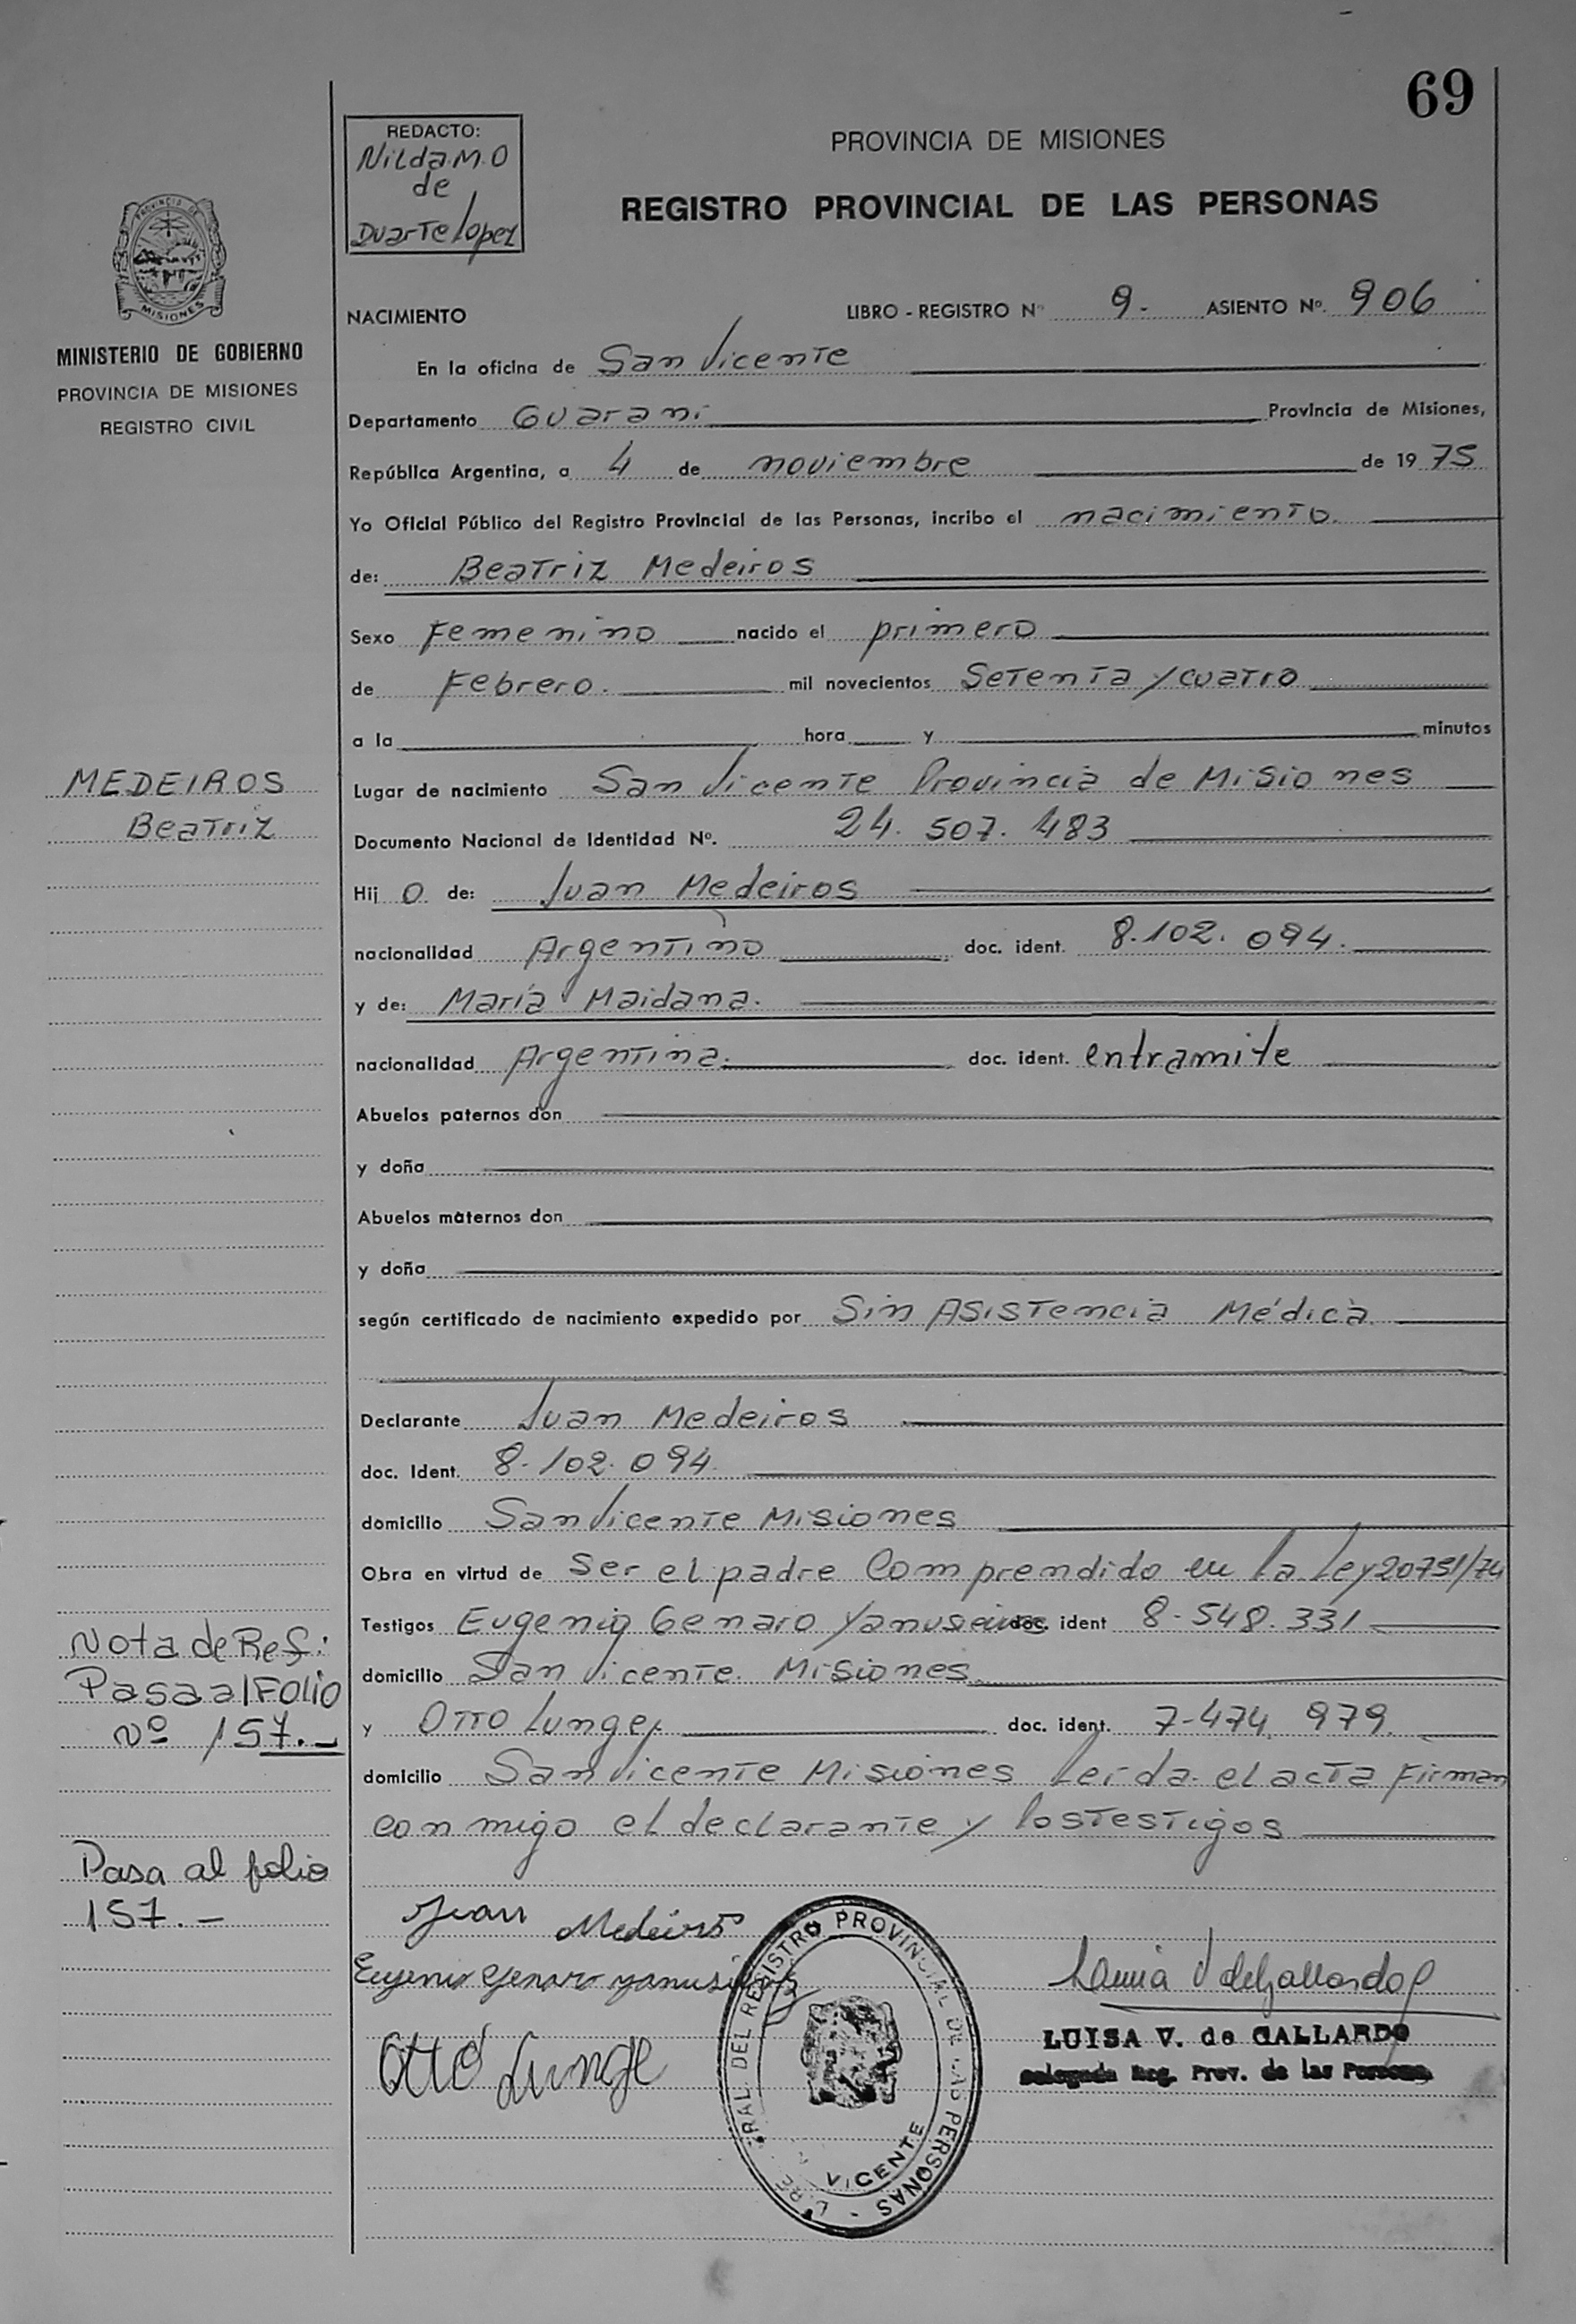 69
REDACTO:
Nilda M. O
de
Duarte Lopez
PROVINCIA DE MISIONES
REGISTRO PROVINCIAL DE LAS PERSONAS
PROVINCIA DE
MISIONES
MINISTERIO DE GOBIERNO
PROVINCIA DE MISIONES
REGISTRO CIVIL
NACIMIENTO LIBRO - REGISTRO Nº 9- ASIENTO Nº. 906
En la oficina de San Vicente
Departamento Guarani Provincia de Misiones,
República Argentina, a 4 de noviembre de 19 75
Yo Oficial Público del Registro Provincial de las Personas, incribo el nacimiento.
de: Beatriz Medeiros
Sexo Femenino nacido el primero
de Febrero. mil novecientos Setenta y cuatro
a la hora y minutos
MEDEIROS
Beatriz
Lugar de nacimiento San Vicente Provincia de Misiones
Documento Nacional de Identidad Nº. 24. 507. 483
Hij o de: Juan Medeiros
nacionalidad Argentino doc. ident. 8.102. 094.
y de: María Maidana.
nacionalidad Argentina. doc. ident. entramite
Abuelos paternos don
y doña
Abuelos maternos don
y doña
según certificado de nacimiento expedido por Sin Asistencia Médica
Declarante Juan Medeiros
doc. Ident. 8.102.094
domicilio San Vicente Misiones
Obra en virtud de ser el padre Comprendido en la Ley 20751/74
Testigos Eugenio Genaro doc. ident 8-548.331
domicilio San Vicente. Misiones
y Otto Lunge, doc. ident. 7-474. 979.
domicilio San Vicente Misiones Leida el acta Firman
conmigo el declarante y los Testigos
Nota de Ref:
Pasa al Folio
Nº 157.-
Pasa al folio
157.-
Juan Medeiros
Eugenio Genaro
Otto Lunge
REGISTRO PROVINCIAL DE LAS PERSONAS
VICENTE
LUISA V. de GALLARDO
Delegada Reg. Prov. de las Personas